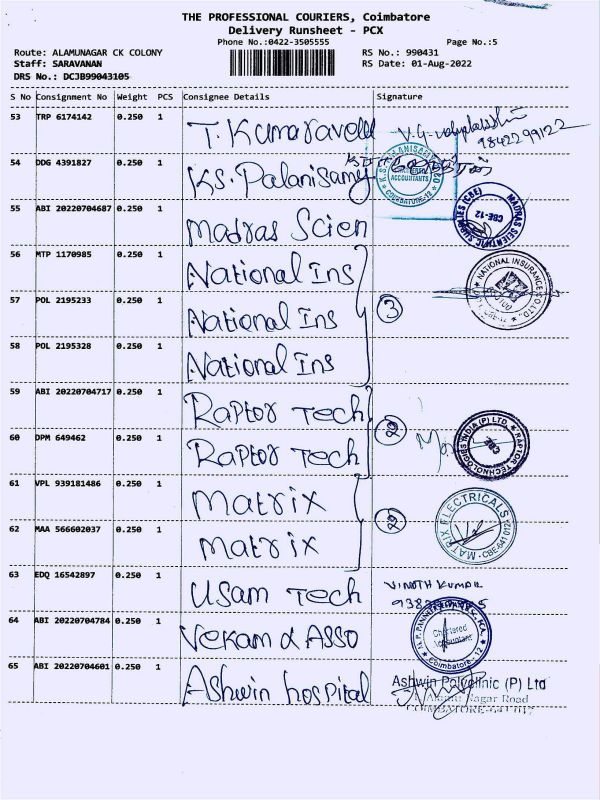 THE PROFESSIONAL COURIERS, Coimbatore
Delivery Runsheet - PCX
Phone No.:0422-3505555 Page No.:5
Route: ALAMUNAGAR CK COLONY RS No.: 990431
Staff: SARAVANAN RS Date: 01-Aug-2022
DRS No.: DCJB99043105
S No Consignment No Weight PCS Consignee Details Signature
53 TRP 6174142 0.250 1 T. Kumaravel 9842299122
54 DDG 4391827 0.250 1 KS. Palanisamy
ACCOUNTANTS
COIMBATORE-12
55 ABI 20220704687 0.250 1 Madras Scien
MADRAS SCIENTIFIC SUPPLIES (CBE)
CBE-12
56 MTP 1170985 0.250 1 National Ins
NATIONAL INSURANCE CO. LTD.
57 POL 2195233 0.250 1 National Ins 3
58 POL 2195328 0.250 1 National Ins
59 ABI 20220704717 0.250 1 Raptor Tech 2
60 DPM 649462 0.250 1 Raptor Tech
RAPTOR TECHNOLOGIES INDIA (P) LTD.
CBE
61 VPL 939181486 0.250 1 Matrix 2
MATRIX ELECTRICALS
CBE-641 012
62 MAA 566602037 0.250 1 Matrix
63 EDQ 16542897 0.250 1 Usam Tech VINOTH KUMAR
64 ABI 20220704784 0.250 1 Vekam & Asso
Chartered
Accountant
Coimbatore-12
65 ABI 20220704601 0.250 1 Ashwin hospital Ashwin Polyclinic (P) Ltd
Nagar Road
COIMBATORE-641 012